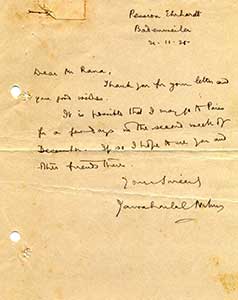 Pension Ehrhardt
Badenweiler
21-11-35
Dear Mr Rana,
Thank you for your letter and
your good wishes.
It is possible that I may go to Paris
for a few days in the second week of
December. If so I hope to see you and
other friends there.
Yours sincerely
Jawaharlal Nehru